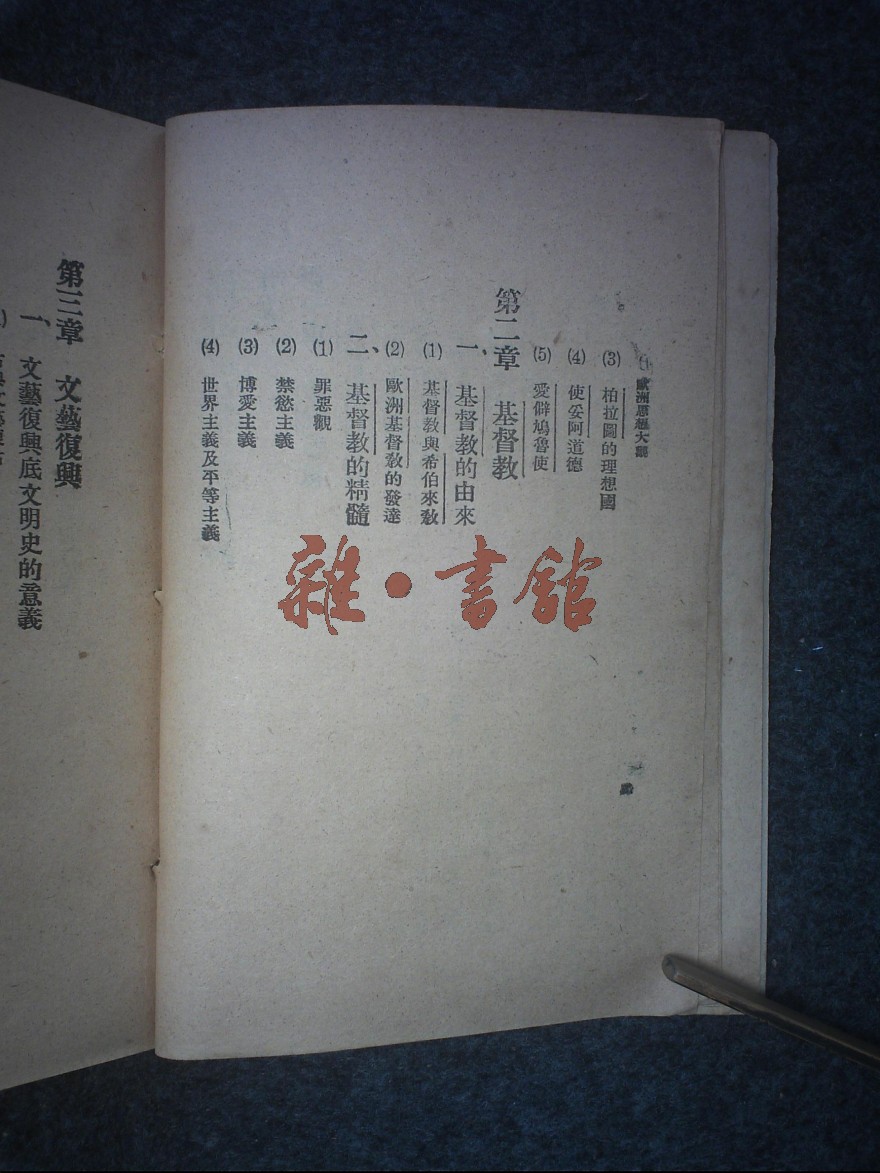 歐洲思想大觀
(3) 柏拉圖的理想國
(4) 使妥阿道德
(5) 愛僻鳩魯使
第二章 基督教
一、基督教的由來
(1) 基督教與希伯來敎
(2) 歐洲基督敎的發達
二、基督教的精髓
(1) 罪惡觀
(2) 禁慾主義
(3) 博愛主義
(4) 世界主義及平等主義
第三章 文藝復興
一、文藝復興底文明史的意義
雜·書館